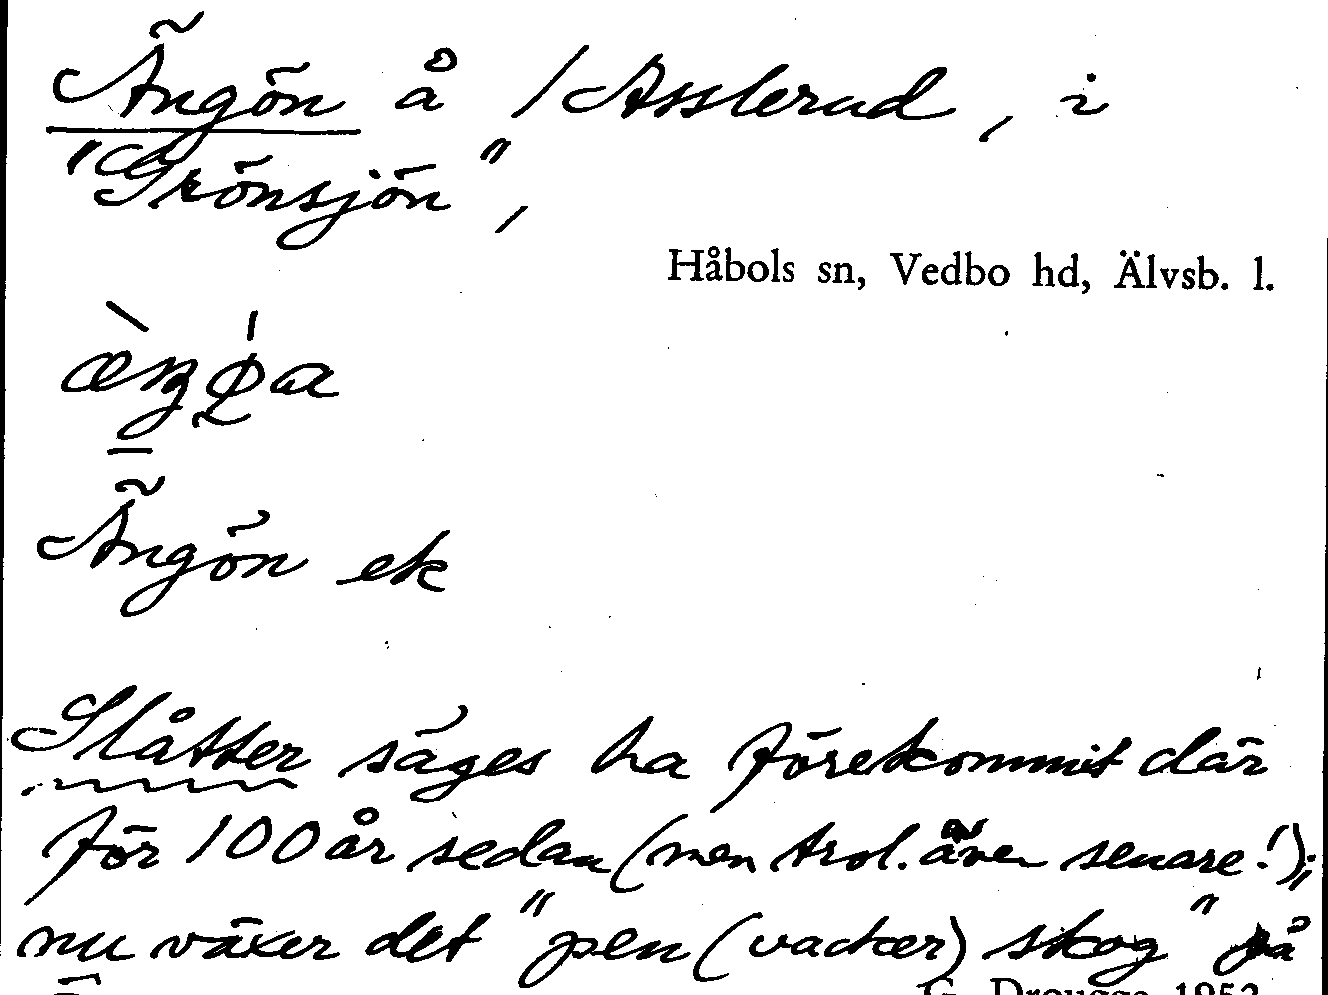 Ängön å 1 Asslerud, i
"Grönsjön",
Håbols sn, Vedbo hd, Älvsb. l.
Ängön ek
Slåtter säges ha förekommit där
för 100 år sedan (men trol. även senare!);
nu växer det "pen (vacker) skog" på
G. Drougge 1952